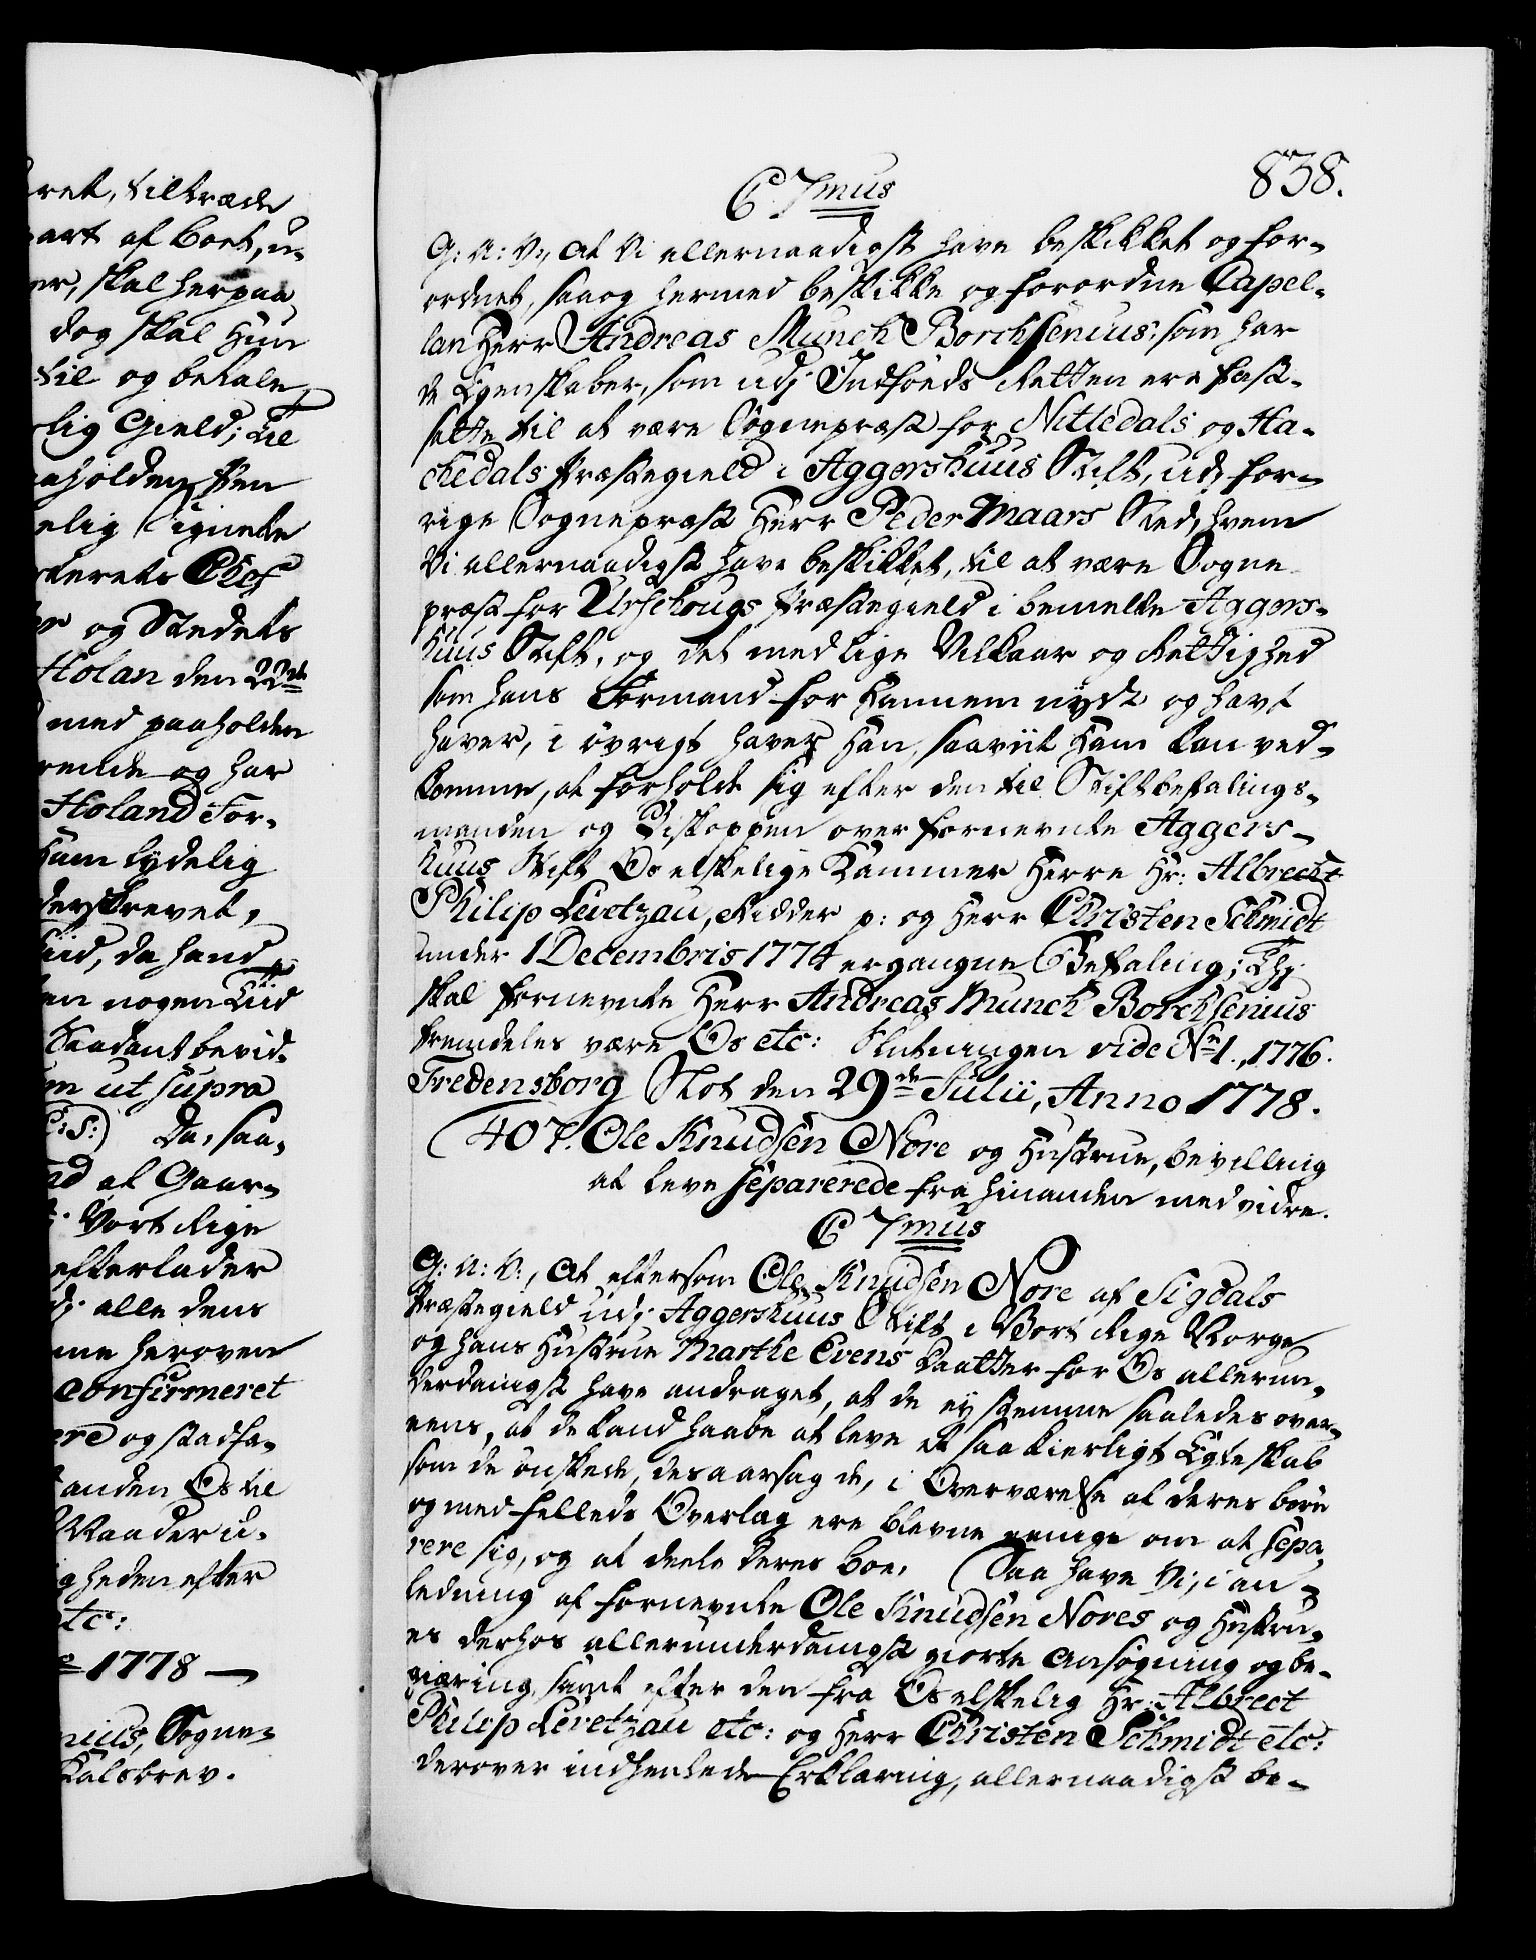 ret, tiltræde
art af Boet, u-
er, skal herpaa
dog skal Hun
til og betale,
lig Gield; Til
aholden Pen
elig Signete
terets Chef
og Stedets
Holan den 22de
med paaholden
og har
Holand For-
Ham tydelig
derskrevet,
tiid, da hand
en nogen Tiid
Saadant bevid-
ut supra
S:) Da, saa-
ad af Gaar-
Vort Rige
efterlader
alle dens
me heroven
Confirmeret
ere og stadfæ-
anden Os til
Maader u-
gheden efter
etc:
1778 —
nius, Sogne-
Kalsbrev.
838.
C 7mus
G: A: V:, At Vi allernaadigst have beskikket og for-
ordnet, saa og hermed beskikke og forordne Capel-
lan Herr Andreas Munch Borchsenius, som har
de Egenskaber, som udj Indføds Retten ere fast-
satte til at være Sognepræst for Nittedals og Ha-
chedals Præstegield i Aggershuus Stift, udj for-
rige Sognepræst Herr Peder Maars Sted, hvem
Vi allernaadigst have beskikket, til at være Sogne
præst for Urschougs Præstegield i bemelte Aggers-
huus Stift, og det med lige Vilkaar og Rettighed
som hans Formand for Hannem nydt og havt
haver, i øvrigt haver Han, saaviit Ham kan ved-
komme, at forholde sig efter den til Stiftbefalings-
manden og Biskoppen over fornevnte Aggers-
huus Stift Os elskelige Kammer Herre Hr: Albrecht
Philip Levetzau, Ridder p: og Herr Christen Schmidt
under 1 Decembris 1774 ergangne Befaling; Thj
skal fornevnte Herr Andreas Munch Borchsenius
fremdeles være Os etc: Slutningen vide No 1., 1776.
Fredensborg Slot den 29de Julii, Anno 1778.
407. Ole Knudsen Nore og Hustrue, bevilling
at leve separerede fra hinanden med vidre.
C 7mus
G: A: V:, At eftersom Ole Knudsen Nore af Sigdals
Præstegield udj Aggershuus Stift i Vort Rige Norge
og hans Hustrue Marthe Evens Daatter for Os allerun-
derdanigst have andraget, at de ey stemme saaledes over-
eens, at de kand haabe at leve et saa kierligt Egteskab
som de ønskede, desaarsag de, i Overværelse af deres børn
og med felleds Overlag ere blevne eenige om at sepa-
rere sig, og at deele deres boe, Saa have Vi, i an-
ledning af fornevnte Ole Knudsen Nores og Hustru-
es derhos allerunderdanigst giorte Ansøgning og be-
giæring, samt efter den fra Os elskelig Hr: Albrect
Philip Levetzau etc: og Herr Christen Schmidt etc:
derover indhentede Erklæring, allernaadigst be-